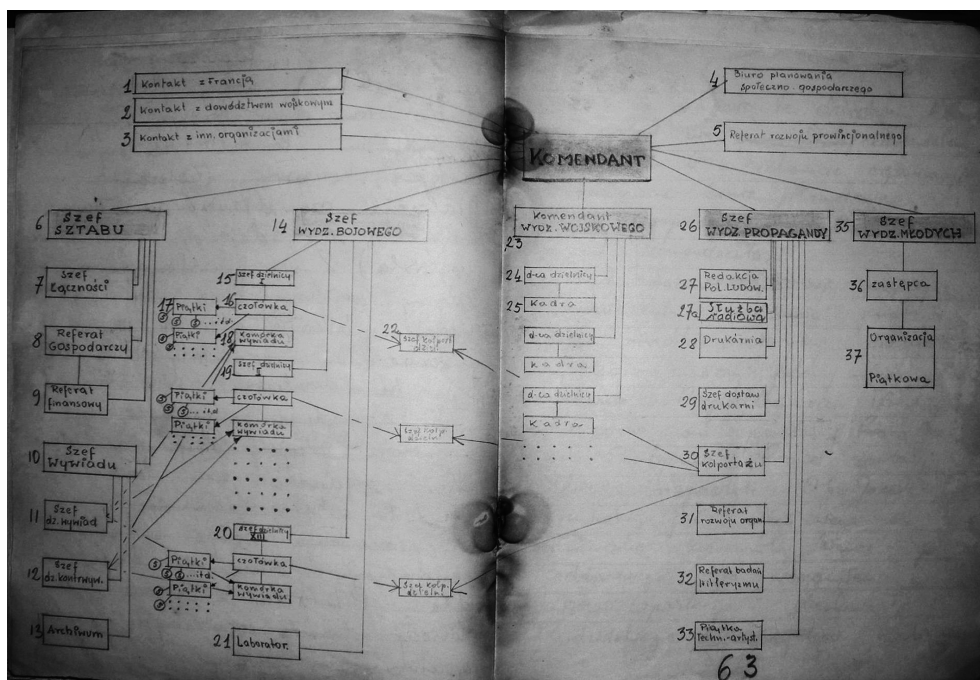 1 Kontakt z Francją
2 Kontakt z dowództwem wojskowym
3 Kontakt z inn. organizacjami
4 Biuro planowania
społeczno. gospodarczego
5 Referat rozwoju prowincjonalnego
KOMENDANT
6 Szef
SZTABU
7 Szef
Łączności
8 Referat
GOSPODARCZY
9 Referat
finansowy
10 Szef
Wywiadu
11 Szef
dz. wywiad
12 Szef
dz. kontrwyw.
13 Archiwum
14 Szef
WYDZ. BOJOWEGO
15 Szef dzielnicy
I
16 czołówka
17 Piątki
itd
Piątki
18 Komórka
wywiadu
19 Szef dzielnicy
II
czołówka
Piątki
itd
Piątki
Komórka
wywiadu
20 Szef dzielnicy
XIII
czołówka
Piątki
itd.
Piątki
Komórka
wywiadu
21 Laborator.
22 Szef kolport.
dzieln.
Szef kolp.
dzieln.
Szef kolp.
dzieln.
23 Komendant
WYDZ. WOJSKOWEGO
24 d-ca dzielnicy
25 Kadra
d-ca dzielnicy
Kadra
d-ca dzielnicy
Kadra
26 Szef
WYDZ PROPAGANDY
27 Redakcja
Pol. LUDÓW.
27a Służba
radiowa
28 Drukárnia
29 Szef dostaw
drukarni
30 Szef
kolportażu
31 Referat
rozwoju organ.
32 Referat badań
hitleryzmu
33 Piątka
Techn.-artyst.
35 Szef
WYDZ. MŁODYCH
36 zastępca
37 Organizacja
Piątkowa
63